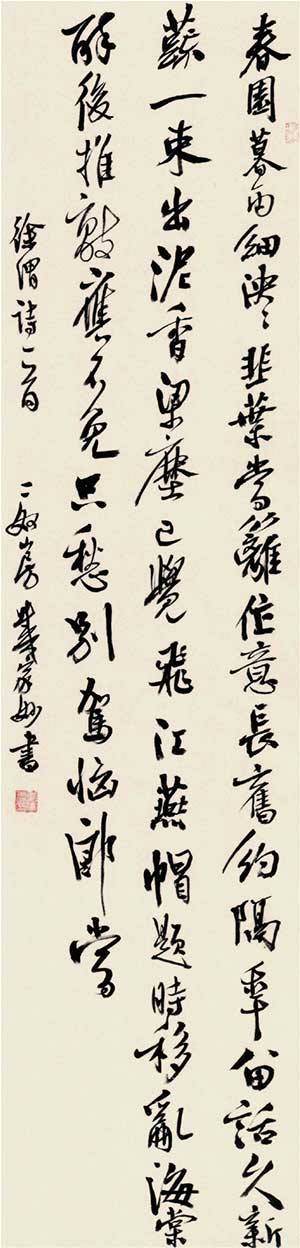 春園暮雨細泱々韭葉當籬作意長舊約隔年留話久新
蔬一束出泥香梁塵已覺飛江燕帽題時移亂海棠
醉後推敲應不免只愁別駕惱郎當
徐渭詩一首 山房戴家妙書